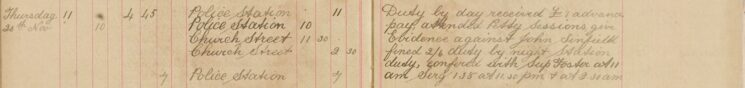 Thursday 11 4 45 Police Station 11 Duty by day received £1 advance
20th Nov 10 Police Station 10 pay attended Petty Sessions give
Church Street 11 30 Evidence against John
Church Street 2 30 fined 2/6 duty by night Station
duty, conferred with Sup Foster at 11
7 Police Station 7 am Serg 135 at 11.30 pm & at 2.30 am